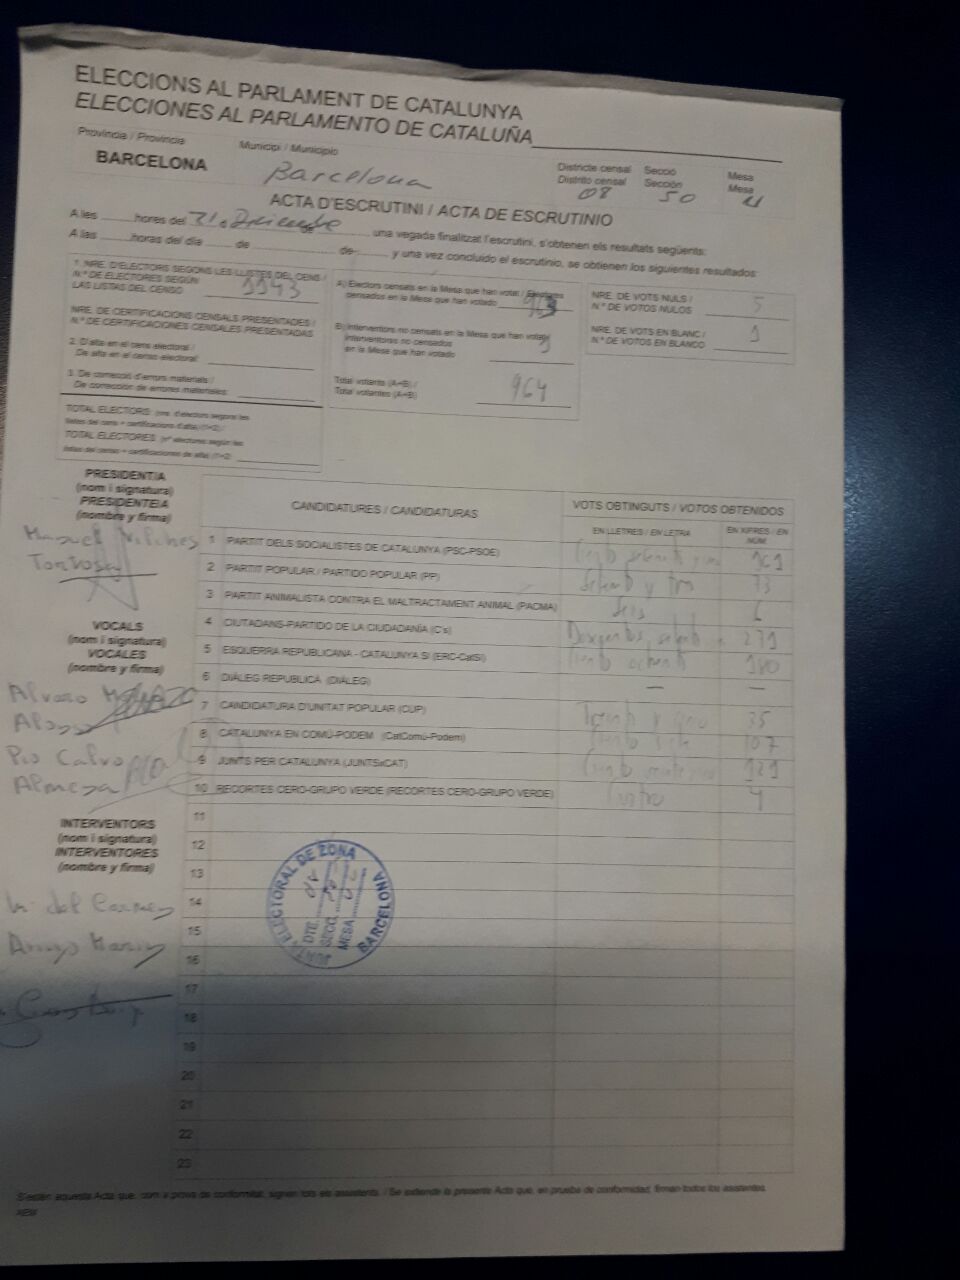 ELECCIONS AL PARLAMENT DE CATALUNYA
ELECCIONES AL PARLAMENTO DE CATALUÑA
Provincia / Provincia
Municipi / Municipio
Districte censal
Distrito censal
Secció
Sección
Mesa
Mesa
BARCELONA
Barcelona
08
50
U
ACTA D'ESCRUTINI / ACTA DE ESCRUTINIO
A les ........hores del 21 Diciembre ........ una vegada finalitzat l'escrutini, s'obtenen els resultats següents:
A las ........horas del día ........ de ........ de ........ y una vez concluido el escrutinio, se obtienen los siguientes resultados:
1. NRE. D'ELECTORS SEGONS LES LLISTES DEL CENS /
N.º DE ELECTORES SEGÚN
LAS LISTAS DEL CENSO
NRE. DE CERTIFICACIONS CENSALS PRESENTADES /
N.º DE CERTIFICACIONES CENSALES PRESENTADAS
2. D'alta en el cens electoral /
De alta en el censo electoral:
3. De correcció d'errors materials /
De corrección de errores materiales:
TOTAL ELECTORS: (nre. d'electors segons les
llistes del cens + certificacions d'alta) (1+2) /
TOTAL ELECTORES: (nº electores según las
listas del censo + certificaciones de alta) (1+2)
A) Electors censats en la Mesa que han votat / Electores
censados en la Mesa que han votado
B) Interventors no censats en la Mesa que han votat /
Interventores no censados
en la Mesa que han votado
Total votants (A+B) /
Total votantes (A+B)
964
NRE. DE VOTS NULS /
N.º DE VOTOS NULOS
5
NRE. DE VOTS EN BLANC /
N.º DE VOTOS EN BLANCO
PRESIDENT/A
(nom i signatura)
PRESIDENTE/A
(nombre y firma)
Manuel Vilches
Tortosa
VOCALS
(nom i signatura)
VOCALES
(nombre y firma)
Alvaro
Pio Calvo
INTERVENTORS
(nom i signatura)
INTERVENTORES
(nombre y firma)
CANDIDATURES / CANDIDATURAS
VOTS OBTINGUTS / VOTOS OBTENIDOS
EN LLETRES / EN LETRA
EN XIFRES / EN NÚM.
1 PARTIT DELS SOCIALISTES DE CATALUNYA (PSC-PSOE)
2 PARTIT POPULAR / PARTIDO POPULAR (PP) 73
3 PARTIT ANIMALISTA CONTRA EL MALTRACTAMENT ANIMAL (PACMA) Seis 6
4 CIUTADANS-PARTIDO DE LA CIUDADANÍA (C's) 271
5 ESQUERRA REPUBLICANA - CATALUNYA SÍ (ERC-CatSí) Ciento ochenta 180
6 DIÀLEG REPUBLICÀ (DIÀLEG) — —
7 CANDIDATURA D'UNITAT POPULAR (CUP) Treinta y cinco 35
8 CATALUNYA EN COMÚ-PODEM (CatComú-Podem) Ciento siete 107
9 JUNTS PER CATALUNYA (JUNTSxCAT) 121
10 RECORTES CERO-GRUPO VERDE (RECORTES CERO-GRUPO VERDE) Cuatro 4
11
12
13
14
15
16
17
18
19
20
21
22
23
JUNTA ELECTORAL DE ZONA
BARCELONA
DTE.
SECC.
MESA
S'estén aquesta Acta que, com a prova de conformitat, signen tots els assistents. / Se extiende la presente Acta que, en prueba de conformidad, firman todos los asistentes.